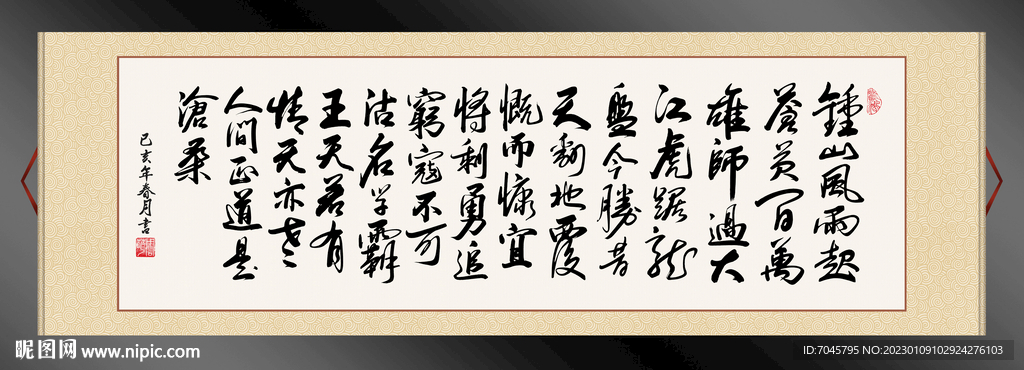 鍾山風雨起
蒼黄百萬
雄師過大
江虎踞龍
盤今勝昔
天翻地覆
慨而慷宜
將剩勇追
窮寇不可
沽名学霸
王天若有
情天亦老
人間正道是
滄桑
己亥年春月書
昵图网 www.nipic.com
ID:7045795 NO:20230109102924276103